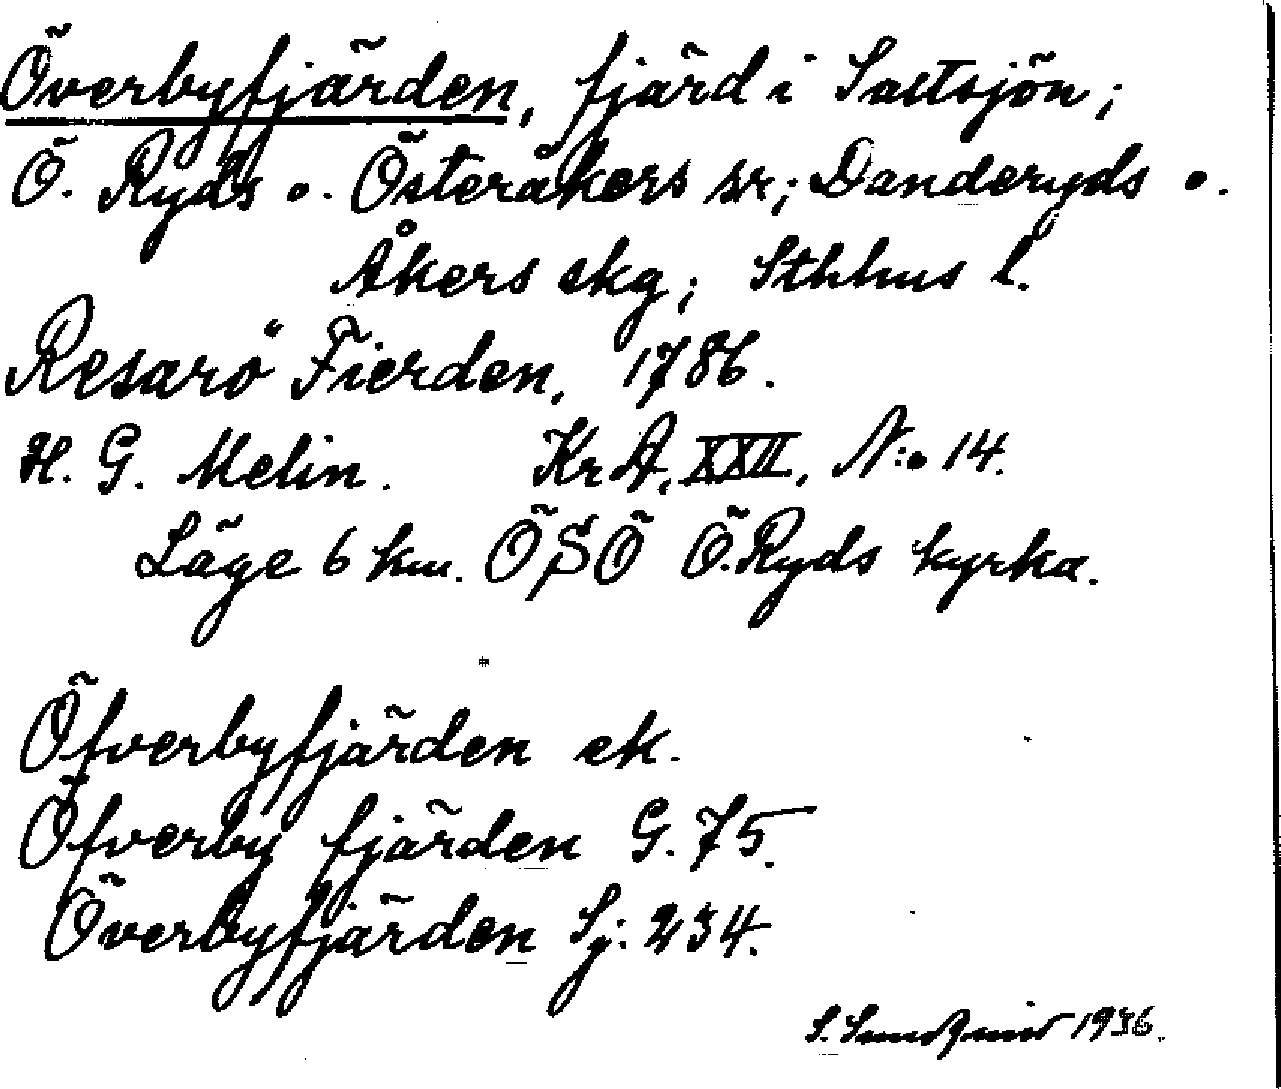 Överbyfjärden, fjärd i Saltsjön;
Ö. Ryds o. Österåkers sr; Danderyds o.
Åkers skg; Sthlms l.
Resarö Fierden, 1786.
H. G. Melin. KrA, XXII, N:o 14.
Läge 6 km. ÖSÖ Ö.Ryds kyrka.
Öfverbyfjärden ek.
Öfverby fjärden G. 75.
Överbyfjärden Sj. 234.
S. 1936.